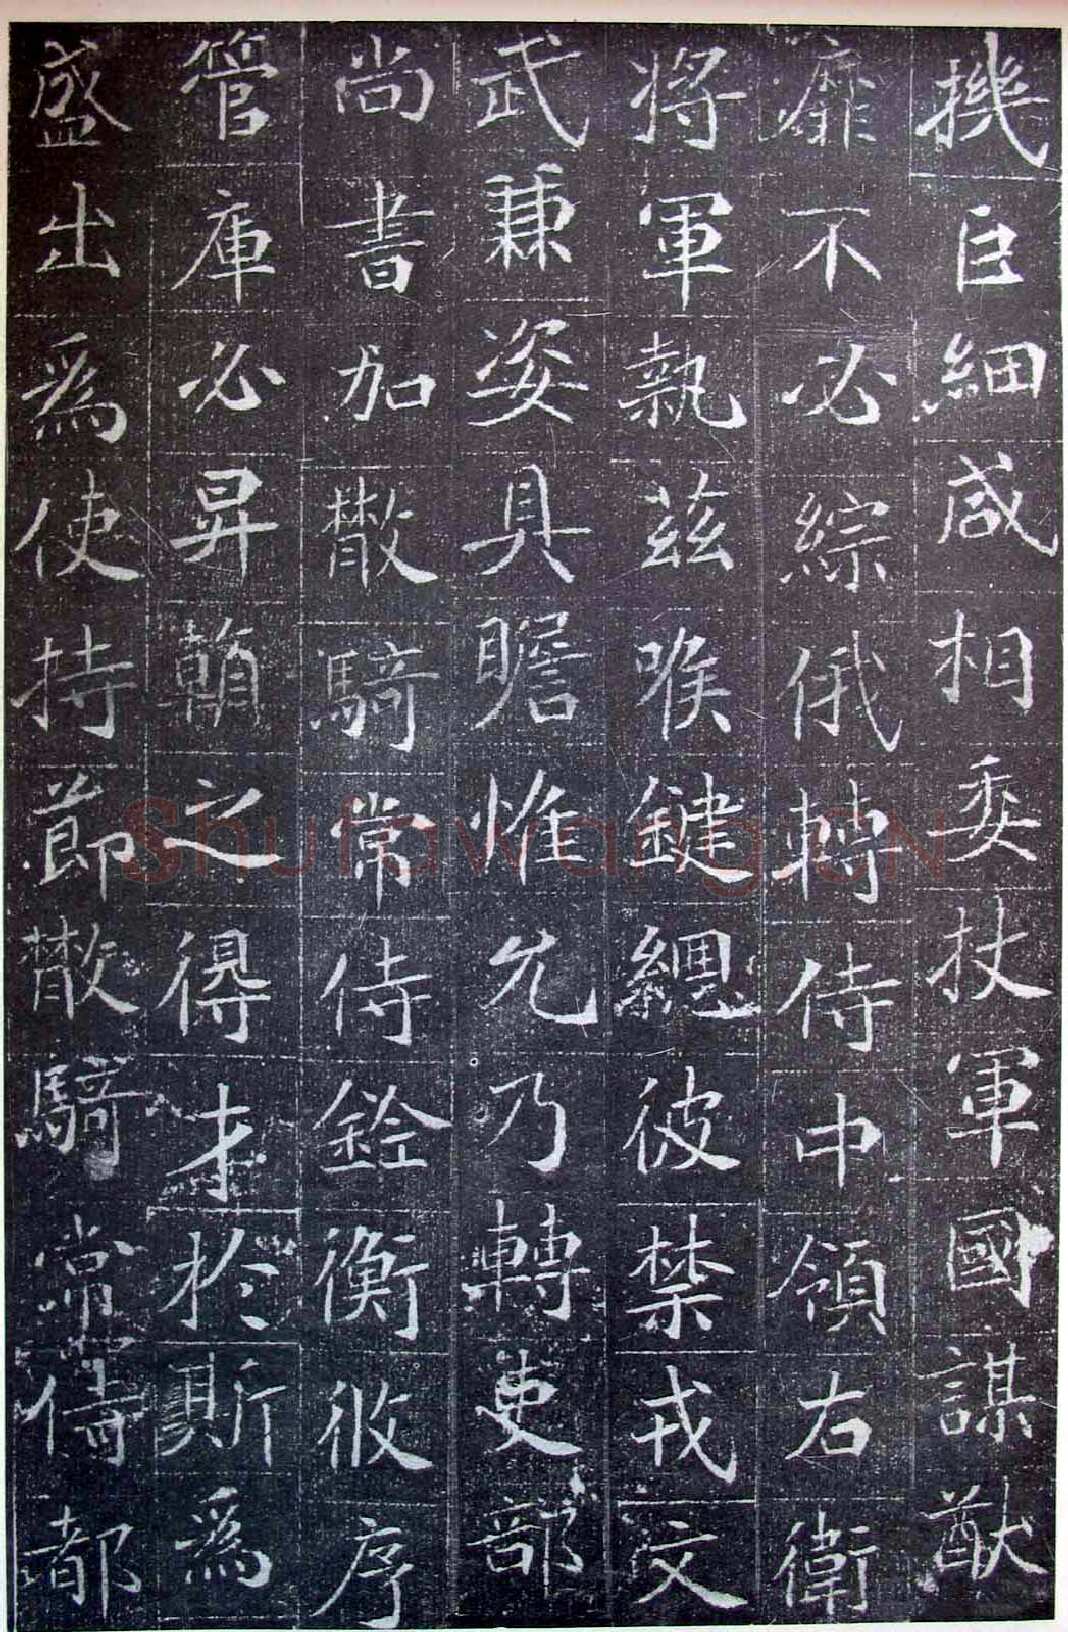 機巨細咸相委杖軍國謀猷
靡不必綜俄轉侍中領右衛
將軍執茲喉鍵總彼禁戎文
武兼姿具瞻惟允乃轉吏部
尚書加散騎常侍銓衡攸序
管庫必昇賴之得才於斯爲
盛出爲使持節散騎常侍都
Shufawang.CN